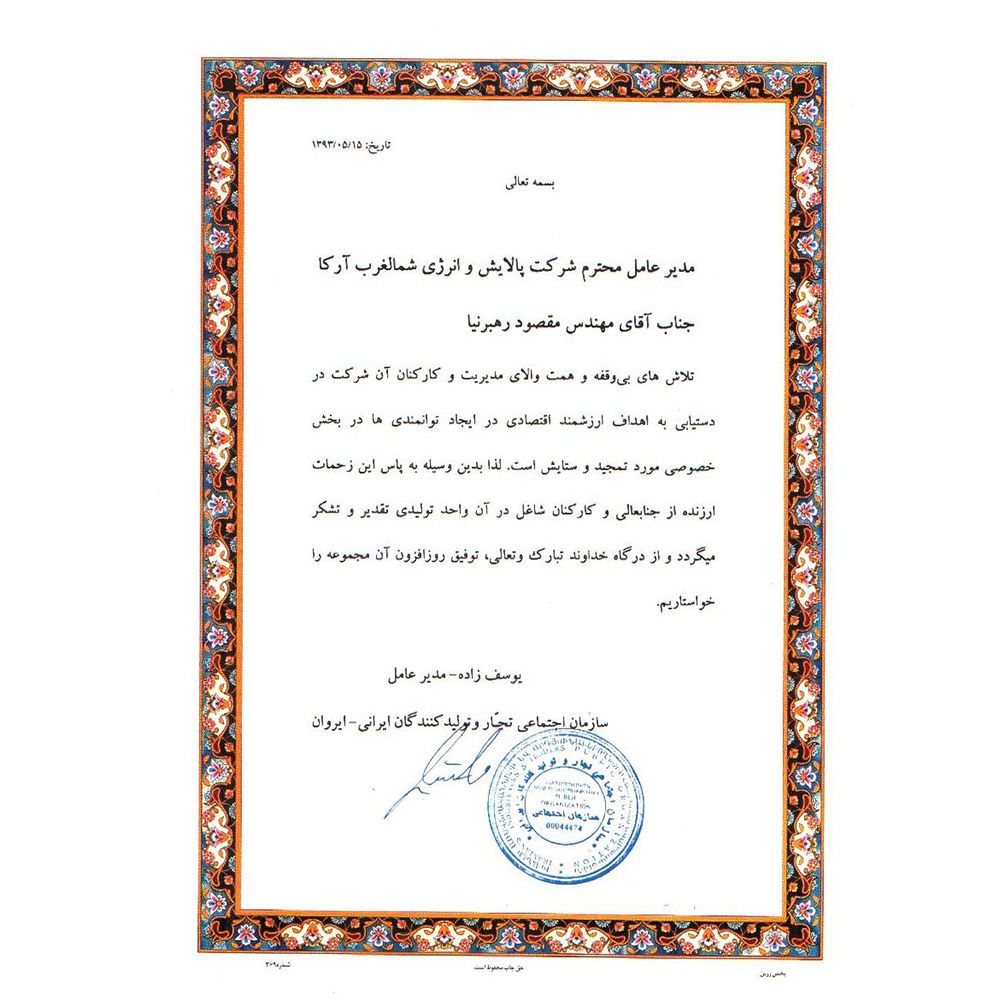 تاریخ: ۱۳۹۳/۰۵/۱۵
بسمه تعالی
مدیر عامل محترم شرکت پالایش و انرژی شمالغرب آرکا
جناب آقای مهندس مقصود رهبرنیا
تلاش های بی‌وقفه و همت والای مدیریت و کارکنان آن شرکت در
دستیابی به اهداف ارزشمند اقتصادی در ایجاد توانمندی ها در بخش
خصوصی مورد تمجید و ستایش است. لذا بدین وسیله به پاس این زحمات
ارزنده از جنابعالی و کارکنان شاغل در آن واحد تولیدی تقدیر و تشکر
میگردد و از درگاه خداوند تبارک وتعالی، توفیق روزافزون آن مجموعه را
خواستاریم.
یوسف زاده - مدیر عامل
سازمان اجتماعی تجّار و تولیدکنندگان ایرانی - ایروان
PUBLIC
ORGANIZATION
سازمان اجتماعی
00044474
حق چاپ محفوظ است